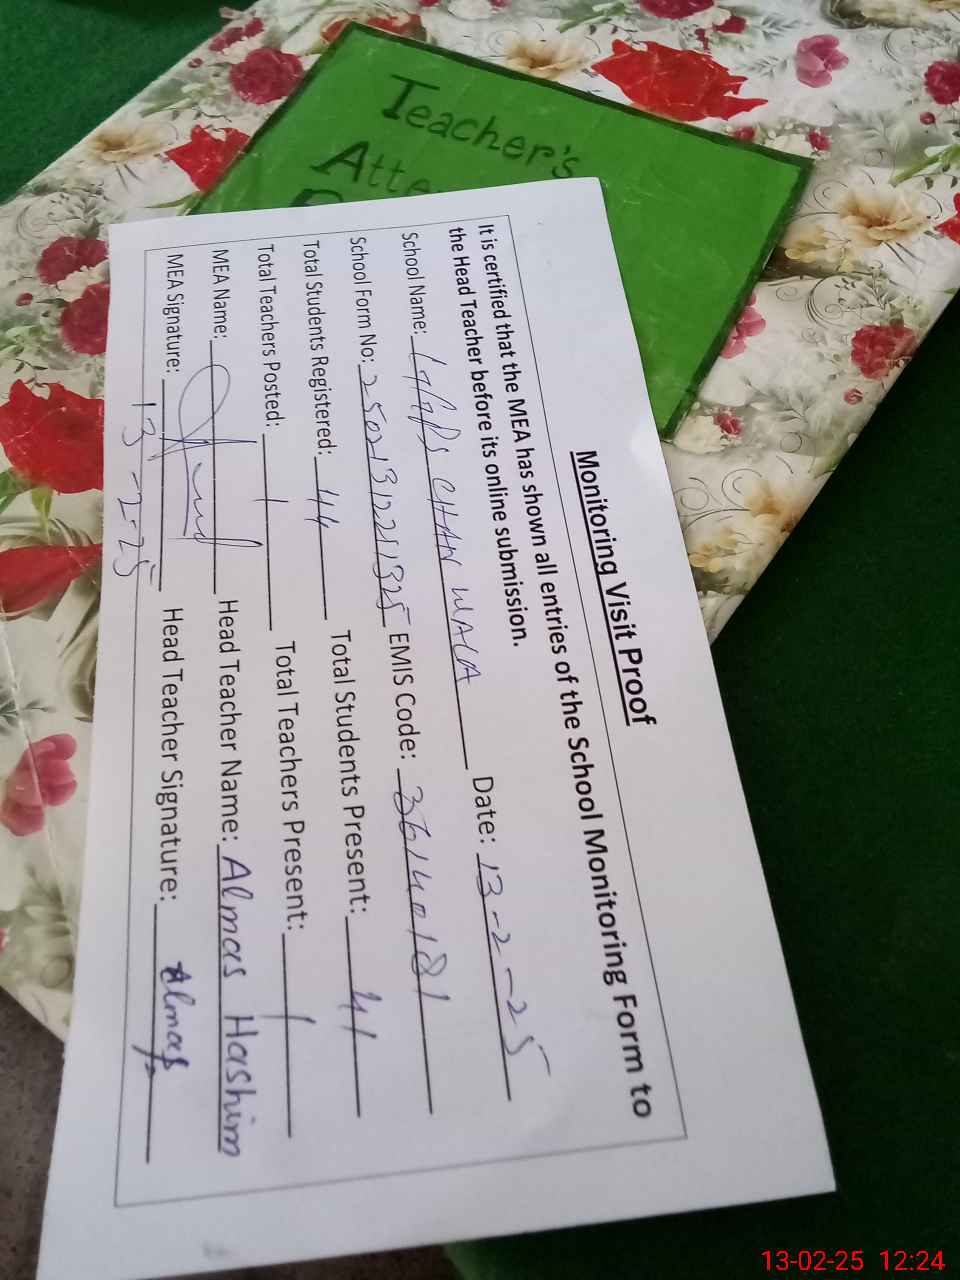 Teacher's
Atte
Monitoring Visit Proof
It is certified that the MEA has shown all entries of the School Monitoring Form to
the Head Teacher before its online submission.
School Name: CHAN WALA Date: 13-2-25
School Form No: EMIS Code: 36140181
Total Students Registered: 44 Total Students Present: 41
Total Teachers Posted: 1 Total Teachers Present: 1
MEA Name: Head Teacher Name: Almas Hashim
MEA Signature: Head Teacher Signature: Almas
13-2-25
13-02-25 12:24